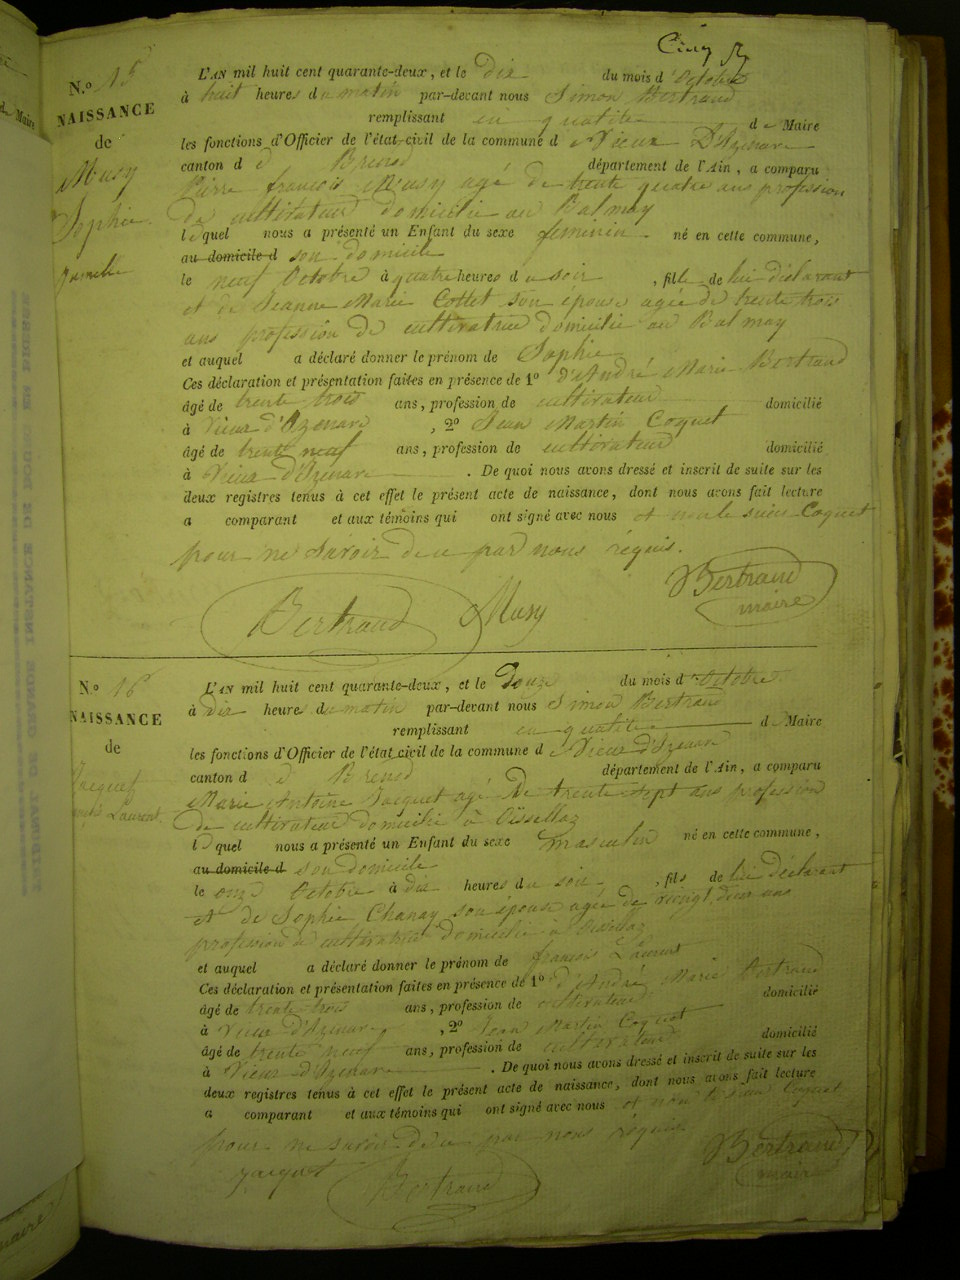 Cinq
N.o 15
NAISSANCE
de
Musy
Sophie
L'AN mil huit cent quarante-deux, et le dix du mois d'Octobre
à huit heures du matin par-devant nous Simon Bertrand
remplissant en qualité de Maire
les fonctions d'Officier de l'état-civil de la commune de Vieux D'Izenave
canton d Brenod département de l'Ain, a comparu
Pierre françois Musy agé de trente quatre ans profession
de cultivateur domicilié au Balmay
lequel nous a présenté un Enfant du sexe feminin né en cette commune,
au domicile d son domicile
le neuf Octobre à quatre heures du soir, fille de lui déclarant
et de Jeanne Marie Cottet son épouse agée de trente trois
ans profession de cultivatrice domicilié au Balmay
et auquel a déclaré donner le prénom de Sophie
Ces déclaration et présentation faites en présence de 1o d'André Marie Bertrand
âgé de trente trois ans, profession de cultivateur domicilié
à Vieux d'Izenave, 2o Jean Martin Coquet
âgé de trente neuf ans, profession de cultivateur domicilié
à Vieux d'Izenave. De quoi nous avons dressé et inscrit de suite sur les
deux registres tenus à cet effet le présent acte de naissance, dont nous avons fait lecture
a comparant et aux témoins qui ont signé avec nous et non le sieur Coquet
pour ne savoir de ce par nous requis.
Bertrand Musy Bertrand
maire
No 16
NAISSANCE
de
Jacquet
Laurent.
L'AN mil huit cent quarante-deux, et le Douze du mois d'Octobre
à dix heures du matin par-devant nous Simon Bertrand
remplissant en qualité de Maire
les fonctions d'Officier de l'état civil de la commune de Vieux d'Izenave
canton d Brenod département de l'Ain, a comparu
Marie Antoine Jacquet agé de trente sept ans profession
de cultivateur domicilié à Oissellaz
lequel nous a présenté un Enfant du sexe masculin né en cette commune,
au domicile d son domicile
le onze Octobre à dix heures du soir, fils de lui déclarant
et de Sophie Chanay son épouse agée de vingt deux ans
profession de cultivatrice domicilié à Oissellaz
et auquel a déclaré donner le prénom de françois Laurent
Ces déclaration et présentation faites en présence de 1o d'André Marie Bertrand
âgé de trente trois ans, profession de cultivateur domicilié
à Vieux d'Izenave, 2o Jean Martin Coquet
âgé de trente neuf ans, profession de cultivateur domicilié
à Vieux d'Izenave. De quoi nous avons dressé et inscrit de suite sur les
deux registres tenus à cet effet le présent acte de naissance, dont nous avons fait lecture
a comparant et aux témoins qui ont signé avec nous et non le sieur Coquet
pour ne savoir de ce par nous requis
Jacquet Bertrand Bertrand
maire